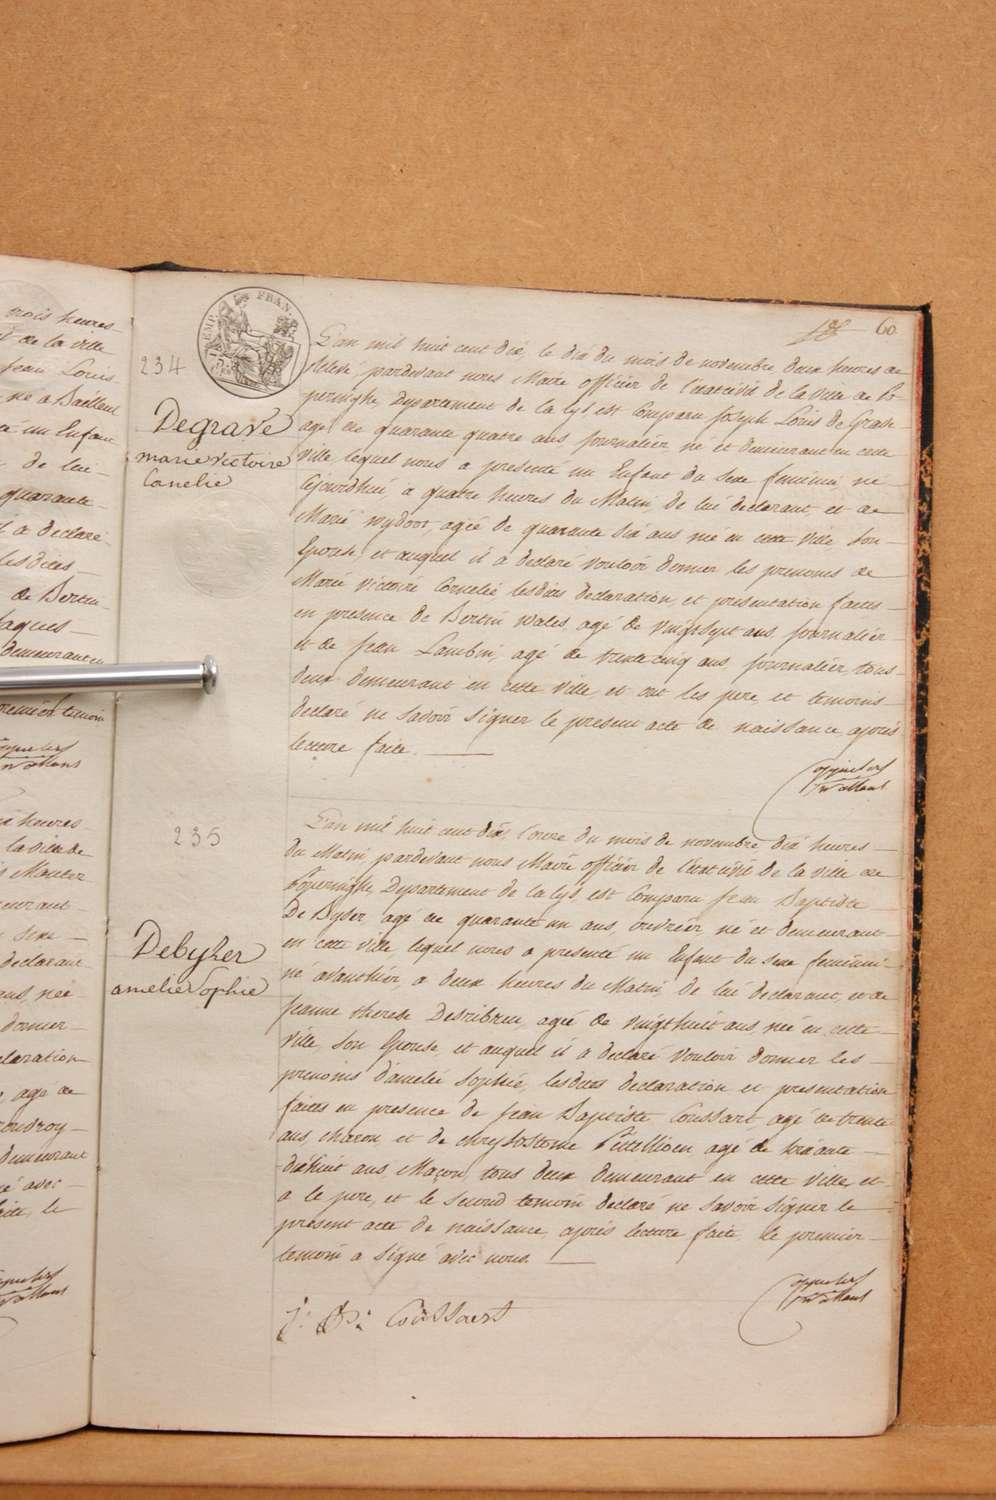 nois heures
de la ville
Jean Louis
né a Bailleul
un Enfant
de lui
quarante
a declaré
lesdites
de Bertin
Jaques
demeurant en
premier temoin
heures
la ville de
Mauler
sexe
declarant
ans, née
donner
claration
agé de
demeurant
avec
faite, le
60
EMP. FRAN.
234
Degrave
marie victoire
Cornelie
L'an mil huit cent dix, le dix du mois de novembre, deux heures de
Relevée, pardevant nous Maire officier de l'etat civil de la ville de Po-
peringhe, Departement de la Lys est Comparu Joseph Louis de Grave
agé de quarante quatre ans, journalier né et demeurant en cette
ville lequel nous a presenté un Enfant du sexe feminin né
cejourdhui, à quatre heures du Matin, de lui declarant, et de
Marie wydoot, agée de quarante dix ans née en cette ville son
Epouse, et auquel il a declaré vouloir donner les prenoms de
Marie Victoire Cornelie, lesdites declaration, et presentation faites
en presence de Bertin Wales, agé de vingtsept ans, journalier
et de Jean Lambin, agé de trente cinq ans journalier, tous
deux demeurant en cette ville et ont les pere, et temoins
declaré ne savoir signer le present acte de naissance, après
lecture faite.
235
Debyser
amelie Sophie
L'an mil huit cent dix, l'onze du mois de novembre, dix heures
du Matin, pardevant nous Maire officier de l'etat civil de la ville de
Poperinghe, Departement de la Lys est Comparu Jean Baptiste
De Byser, agé de quarante un ans, ouvrier né et demeurant
en cette ville, lequel nous a presenté un Enfant du sexe feminin
né avanthier, a deux heures du Matin, de lui declarant, et de
Jeanne therese Desribreu, agée de vingthuit ans née en cette
ville, son Epouse, et auquel il a declaré vouloir donner les
prenoms d'amelie Sophie, lesdites declaration et presentation
faites en presence de Jean Baptiste Coussart, agé de trente
ans, charon, et de chrysostome agé de soixante
dixhuit ans, Maçon, tous deux demeurant en cette ville et
a le pere, et le second temoin declaré ne savoir signer le
present acte de naissance, après lecture faite, le premier
temoin a signé avec nous.
J: B: Coussaert